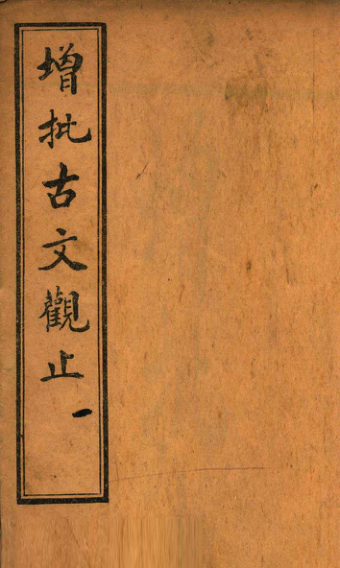 增批古文觀止 一